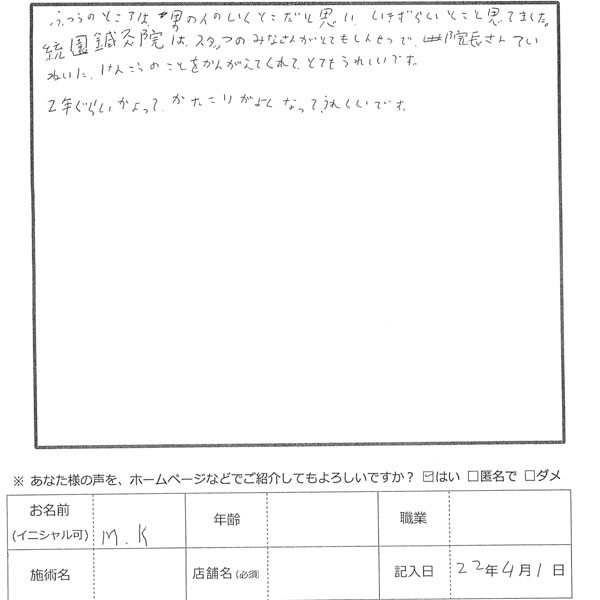 ふつうのところは、男の人のいくとこだと思い、いきずらいとこと思てました。
統園鍼灸院は、スタッフのみなさんがとてもしんせつで、院長さんてい
ねいに、けんこうのことをかんがえてくれて、とてもうれしいです。
2年ぐらいかよって、かたこりがよくなって、うれしいです。
※ あなた様の声を、ホームページなどでご紹介してもよろしいですか？ ☑はい □匿名で □ダメ
お名前 (イニシャル可) M.K 年齢 職業
施術名 店舗名(必須) 記入日 22年4月1日